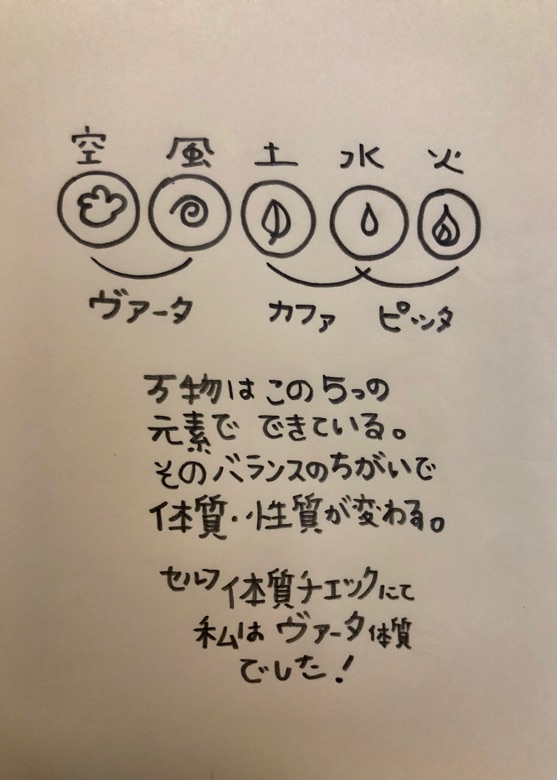 空 風 土 水 火
ヴァータ カファ ピッタ
万物はこの5つの
元素で できている。
そのバランスのちがいで
体質・性質が変わる。
セルフ体質チェックにて
私は ヴァータ体質
でした！